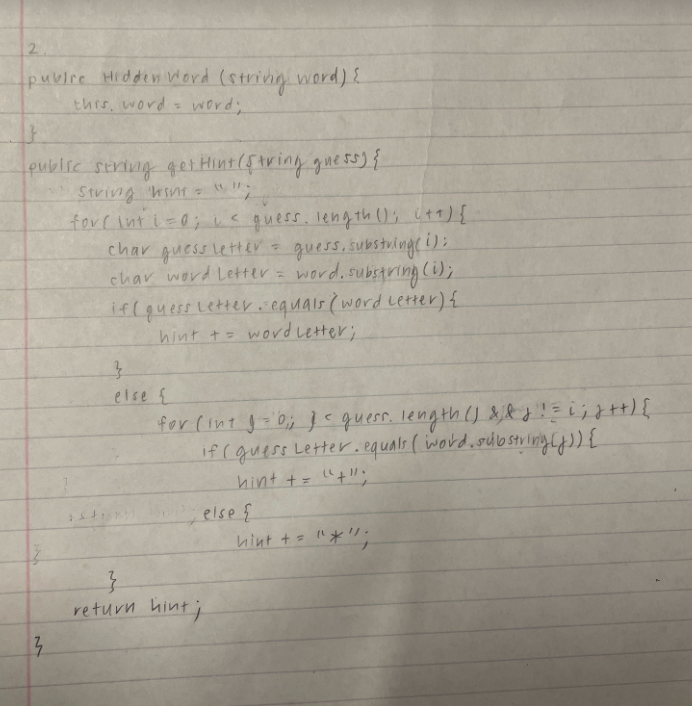 2.
public HiddenWord (string word) {
this. word = word;
}
public string getHint (String guess) {
String hint = "";
for (int i = 0; i < guess. length(); i++) {
char guess letter = guess. substring(i);
char word letter = word. substring(i);
if (guess letter. equals (word letter) {
hint += word letter;
}
else {
for (int j = 0; j < guess. length() && j != i; j++) {
if (guess letter. equals (word. substring(j)) {
hint += "+";
else {
hint += "*";
}
return hint;
}